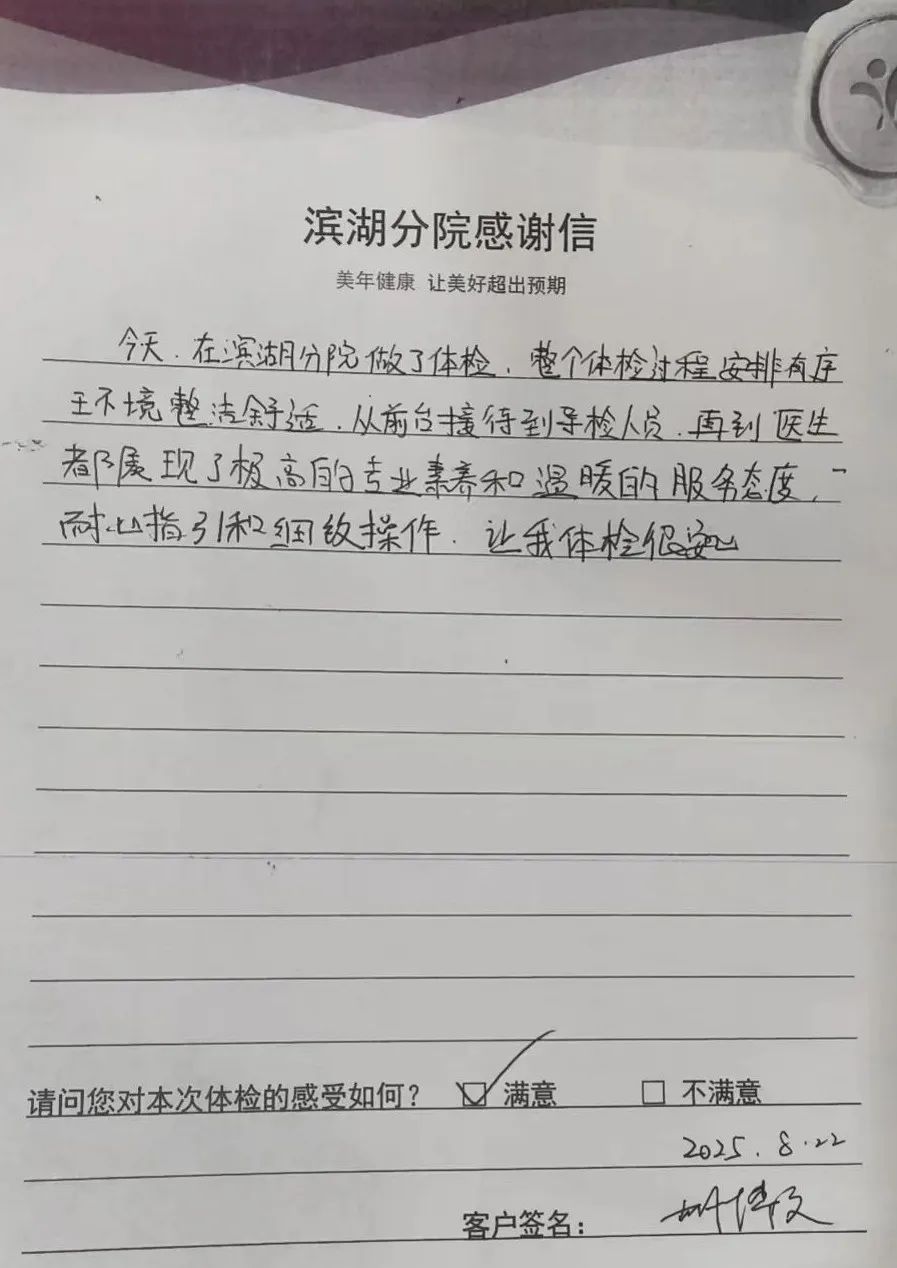 滨湖分院感谢信
美年健康 让美好超出预期
今天.在滨湖分院做了体检,整个体检过程安排有序
环境整洁舒适.从前台接待到导检人员.再到医生
都展现了极高的专业素养和温暖的服务态度,
耐心指引和细致操作.让我体检很安心
请问您对本次体检的感受如何? 满意 不满意
2025.8.22
客户签名: